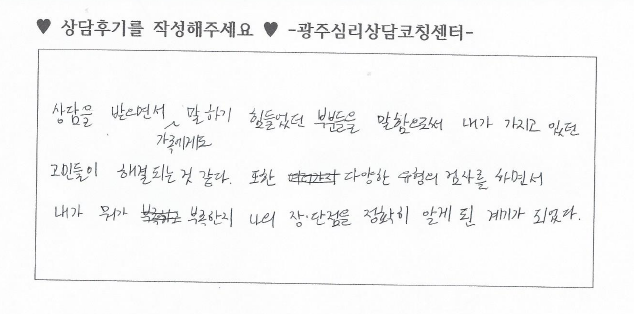 ♥ 상담후기를 작성해주세요 ♥ -광주심리상담코칭센터-
상담을 받으면서 말하기 힘들었던 부분들을 말함으로써 내가 가지고 있던
가족에게도
고민들이 해결되는 것 같다. 또한 여러가지 다양한 유형의 검사를 하면서
내가 뭐가 부족하고 부족한지 나의 장·단점을 정확히 알게 된 계기가 되었다.